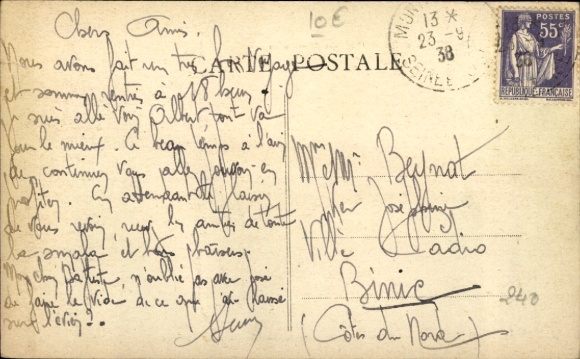 Chers Amis.
10€
Nous avons fait un très bon Voyage
et sommes rentrés à 18 heures.
Je suis allé voir Albert tout va
pour le mieux. Ce beau temps à l'air
de continuer vous allez pouvoir en
profiter. En attendant le plaisir
de vous revoir, recevez les amitiés de toute
la smala et bons baisers.
Mon cher Baptiste, n'oublie pas avec José
de faire le vide de ce que j'ai laissé
sur l'évier.
CARTE POSTALE
13 *
23 -9
38
SEINE
POSTES
55c
REPUBLIQUE FRANÇAISE
Mr Mme Beynot
Villa
Binic
(Côtes du Nord)